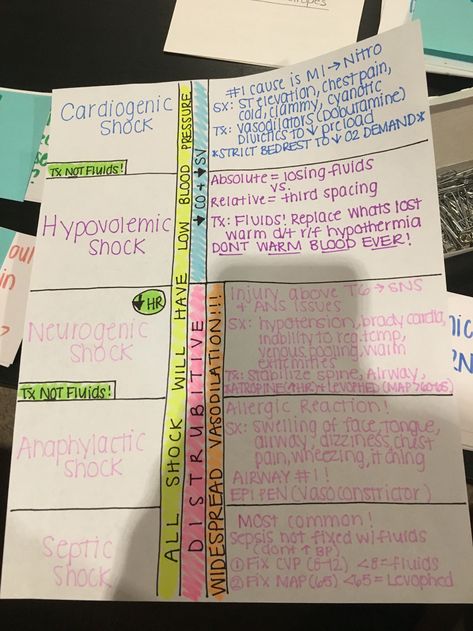 Cardiogenic
Shock
TX NOT FLUIDS!
#1 cause is MI → Nitro
SX: ST elevation, chest pain,
cold, clammy, cyanotic
TX: vasodilators (Dobutamine)
Diuretics to ↓ preload
*STRICT BEDREST TO ↓ O2 DEMAND*
Hypovolemic
Shock
Absolute = losing fluids
vs.
Relative = third spacing
TX: FLUIDS! Replace whats lost
warm d/t r/f hypothermia
DONT WARM BLOOD EVER!
↓ HR
Neurogenic
Shock
TX NOT FLUIDS!
Injury above T6 → SNS
+ ANS issues
SX: hypotension, bradycardia,
inability to reg. temp,
venous pooling, warm
extremities
TX: Stabilize spine, Airway,
ATROPINE (↑HR) + LEVOPHED (MAP >60-65)
Anaphylactic
Shock
Allergic Reaction!
SX: swelling of face, tongue,
airway, dizziness, chest
pain, wheezing, itching
AIRWAY #1!
EPI PEN (vasoconstrictor)
Septic
Shock
Most common!
Sepsis not fixed w/ fluids
(dont ↑ BP)
① FIX CVP (8-12) <8 = fluids
② FIX MAP (65) <65 = Levophed
ALL SHOCK WILL HAVE LOW BLOOD PRESSURE
↓ CO + ↓ SV
DISTRUBITIVE
WIDESPREAD VASODILATION!!!